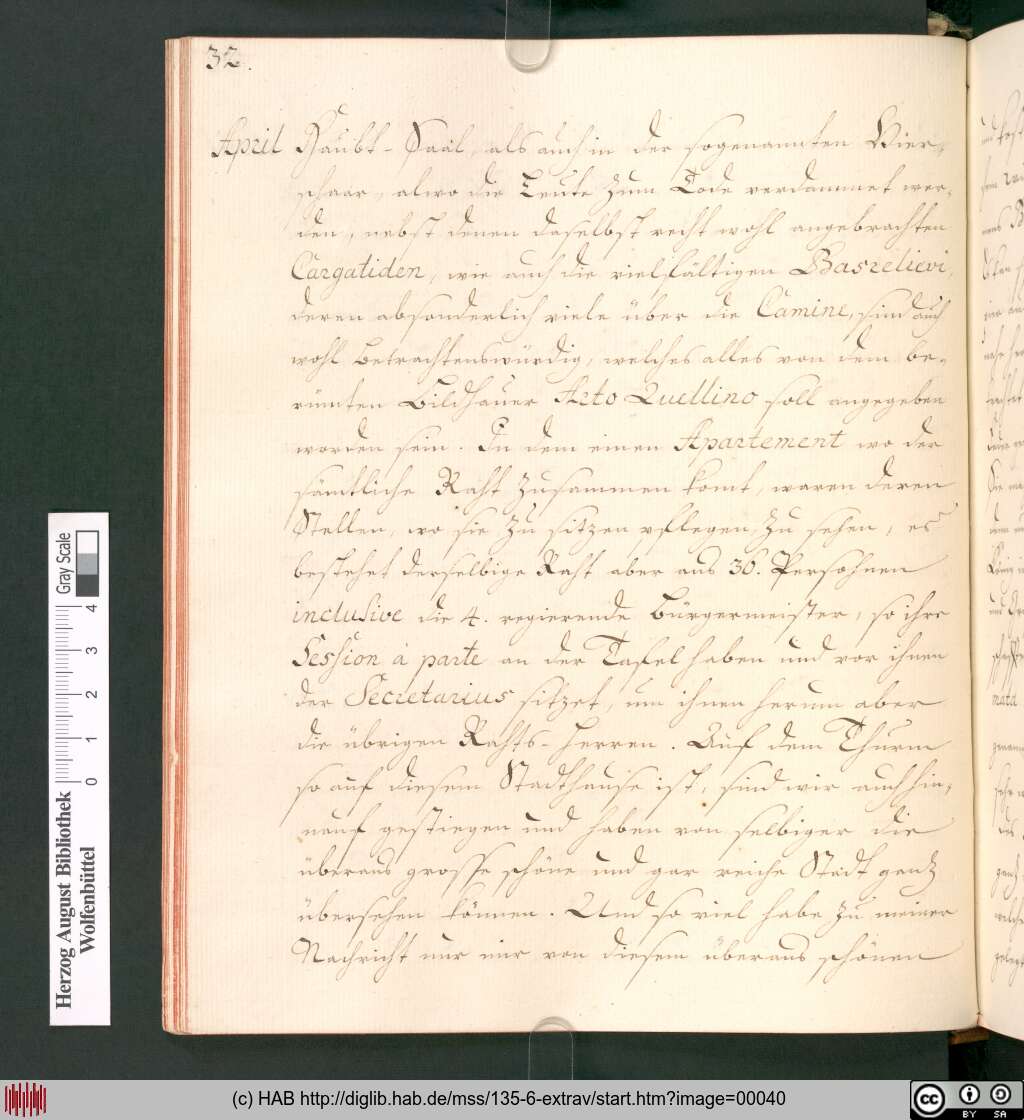 32.
April Haubt-Saal, als auch in der sogenannten Vier-
schaar, alwo die Leute zum Tode verdammet wer-
den, nebst denen daselbst recht wohl angebrachten
Cargatiden, wie auch die vielfältigen Basrelievi,
deren absonderlich viele über die Camine, sind auch
wohl betrachtenswürdig, welches alles von dem be-
rümten Bildhauer Arto Quellino soll angegeben
worden sein. In dem einen Apartement wo der
sämtliche Raht zusammen komt, waren deren
Stellen, wo sie zu sitzen pflegen zu sehen, es
bestehet derselbige Raht aber aus 36. Persohnen
inclusive die 4. regierende Bürgermeister, so ihre
Session à parte an der Tafel haben und vor ihnen
der Secretarius sitzet, um ihnen herum aber
die übrigen Rahts-Herren. Auf dem Thurm
so auf diesem Stadthause ist, sind wir auch hin-
nauf gestiegen und haben von selbiger die
überaus grosse schöne und gar reiche Stadt gantz
übersehen können. Und so viel habe zu meiner
Nachricht nur mir von diesem überaus schönen
Gray Scale
0 1 2 3 4
Herzog August Bibliothek
Wolfenbüttel
(c) HAB http://diglib.hab.de/mss/135-6-extrav/start.htm?image=00040
cc BY SA